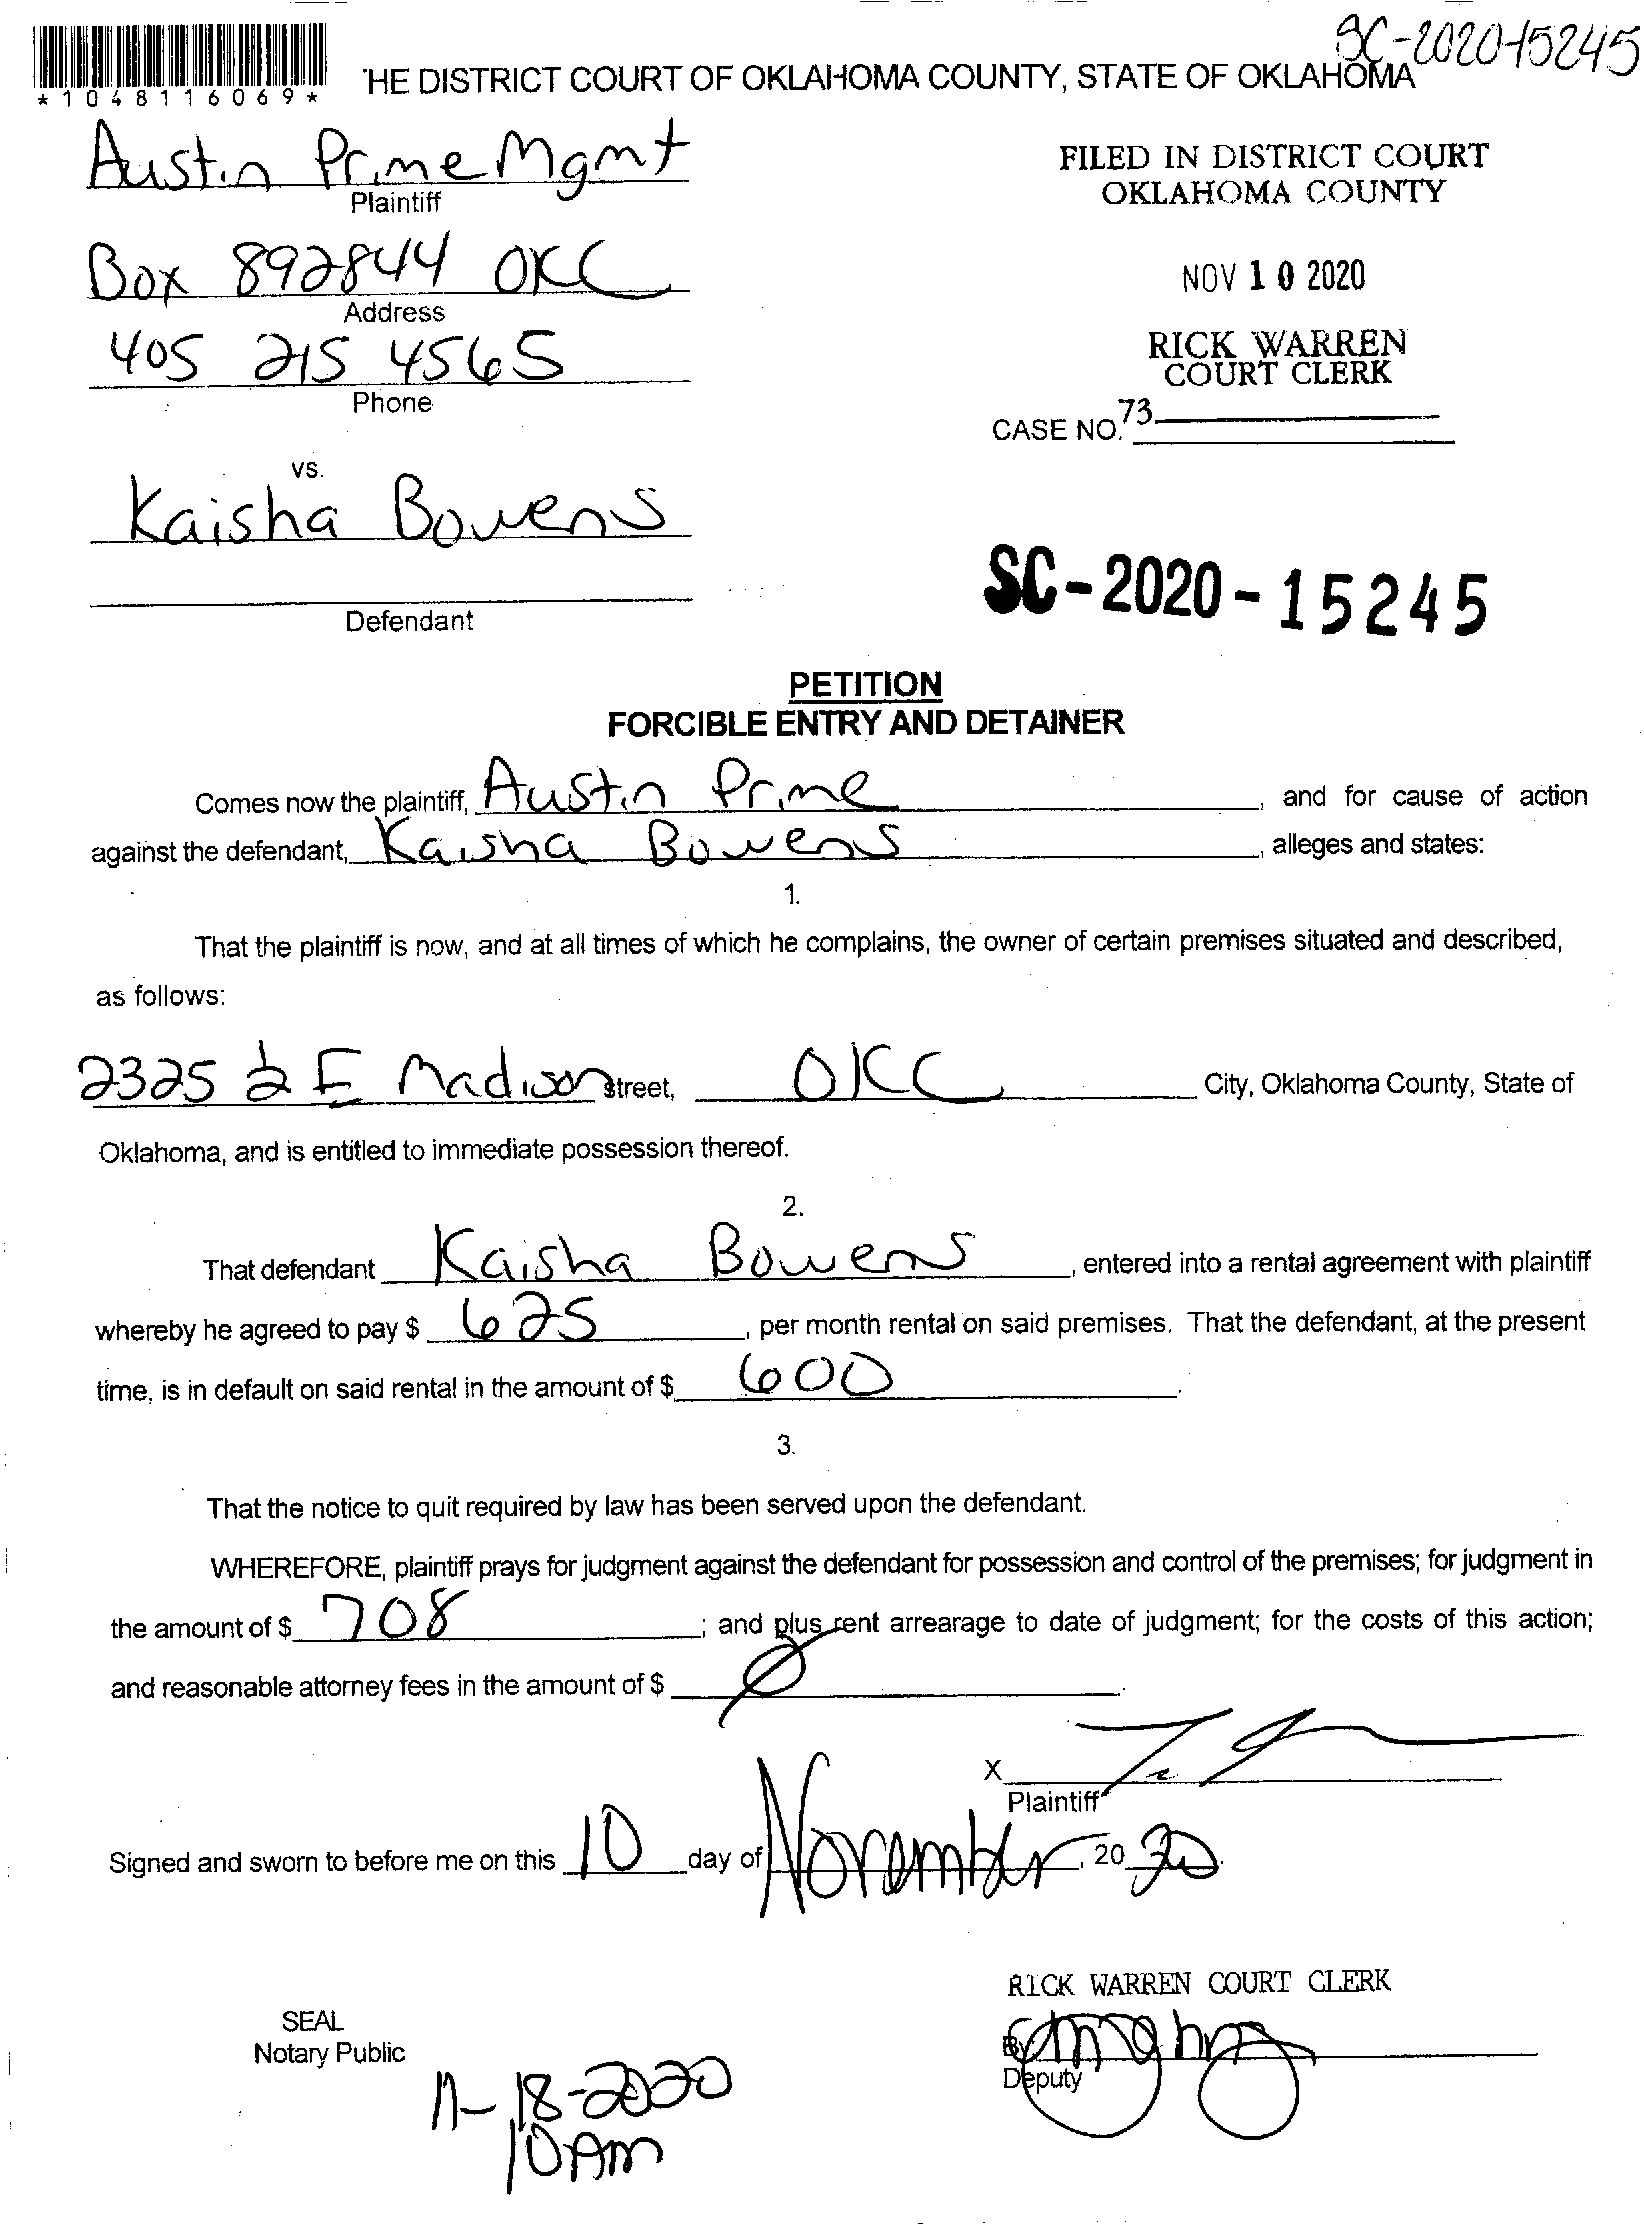 SC-2020-15245
*1048116069*
'HE DISTRICT COURT OF OKLAHOMA COUNTY, STATE OF OKLAHOMA
Austin Prime Mgmt
Plaintiff
FILED IN DISTRICT COURT
OKLAHOMA COUNTY
Box 892844 OKC
Address
NOV 10 2020
405 215 4565
Phone
RICK WARREN
COURT CLERK
CASE NO. 73
vs.
Kaisha Bowens
Defendant
SC-2020-15245
PETITION
FORCIBLE ENTRY AND DETAINER
Comes now the plaintiff, Austin Prime, and for cause of action
against the defendant, Kaisha Bowens, alleges and states:
1.
That the plaintiff is now, and at all times of which he complains, the owner of certain premises situated and described,
as follows:
2325 ½ E Madison Street, OKC City, Oklahoma County, State of
Oklahoma, and is entitled to immediate possession thereof.
2.
That defendant Kaisha Bowens, entered into a rental agreement with plaintiff
whereby he agreed to pay $ 625, per month rental on said premises. That the defendant, at the present
time, is in default on said rental in the amount of $ 600.
3.
That the notice to quit required by law has been served upon the defendant.
WHEREFORE, plaintiff prays for judgment against the defendant for possession and control of the premises; for judgment in
the amount of $ 708; and plus rent arrearage to date of judgment; for the costs of this action;
and reasonable attorney fees in the amount of $ Ø.
X
Plaintiff
Signed and sworn to before me on this 10 day of November, 20 20.
RICK WARREN COURT CLERK
SEAL
Notary Public
By
Deputy
11-18-2020
10AM